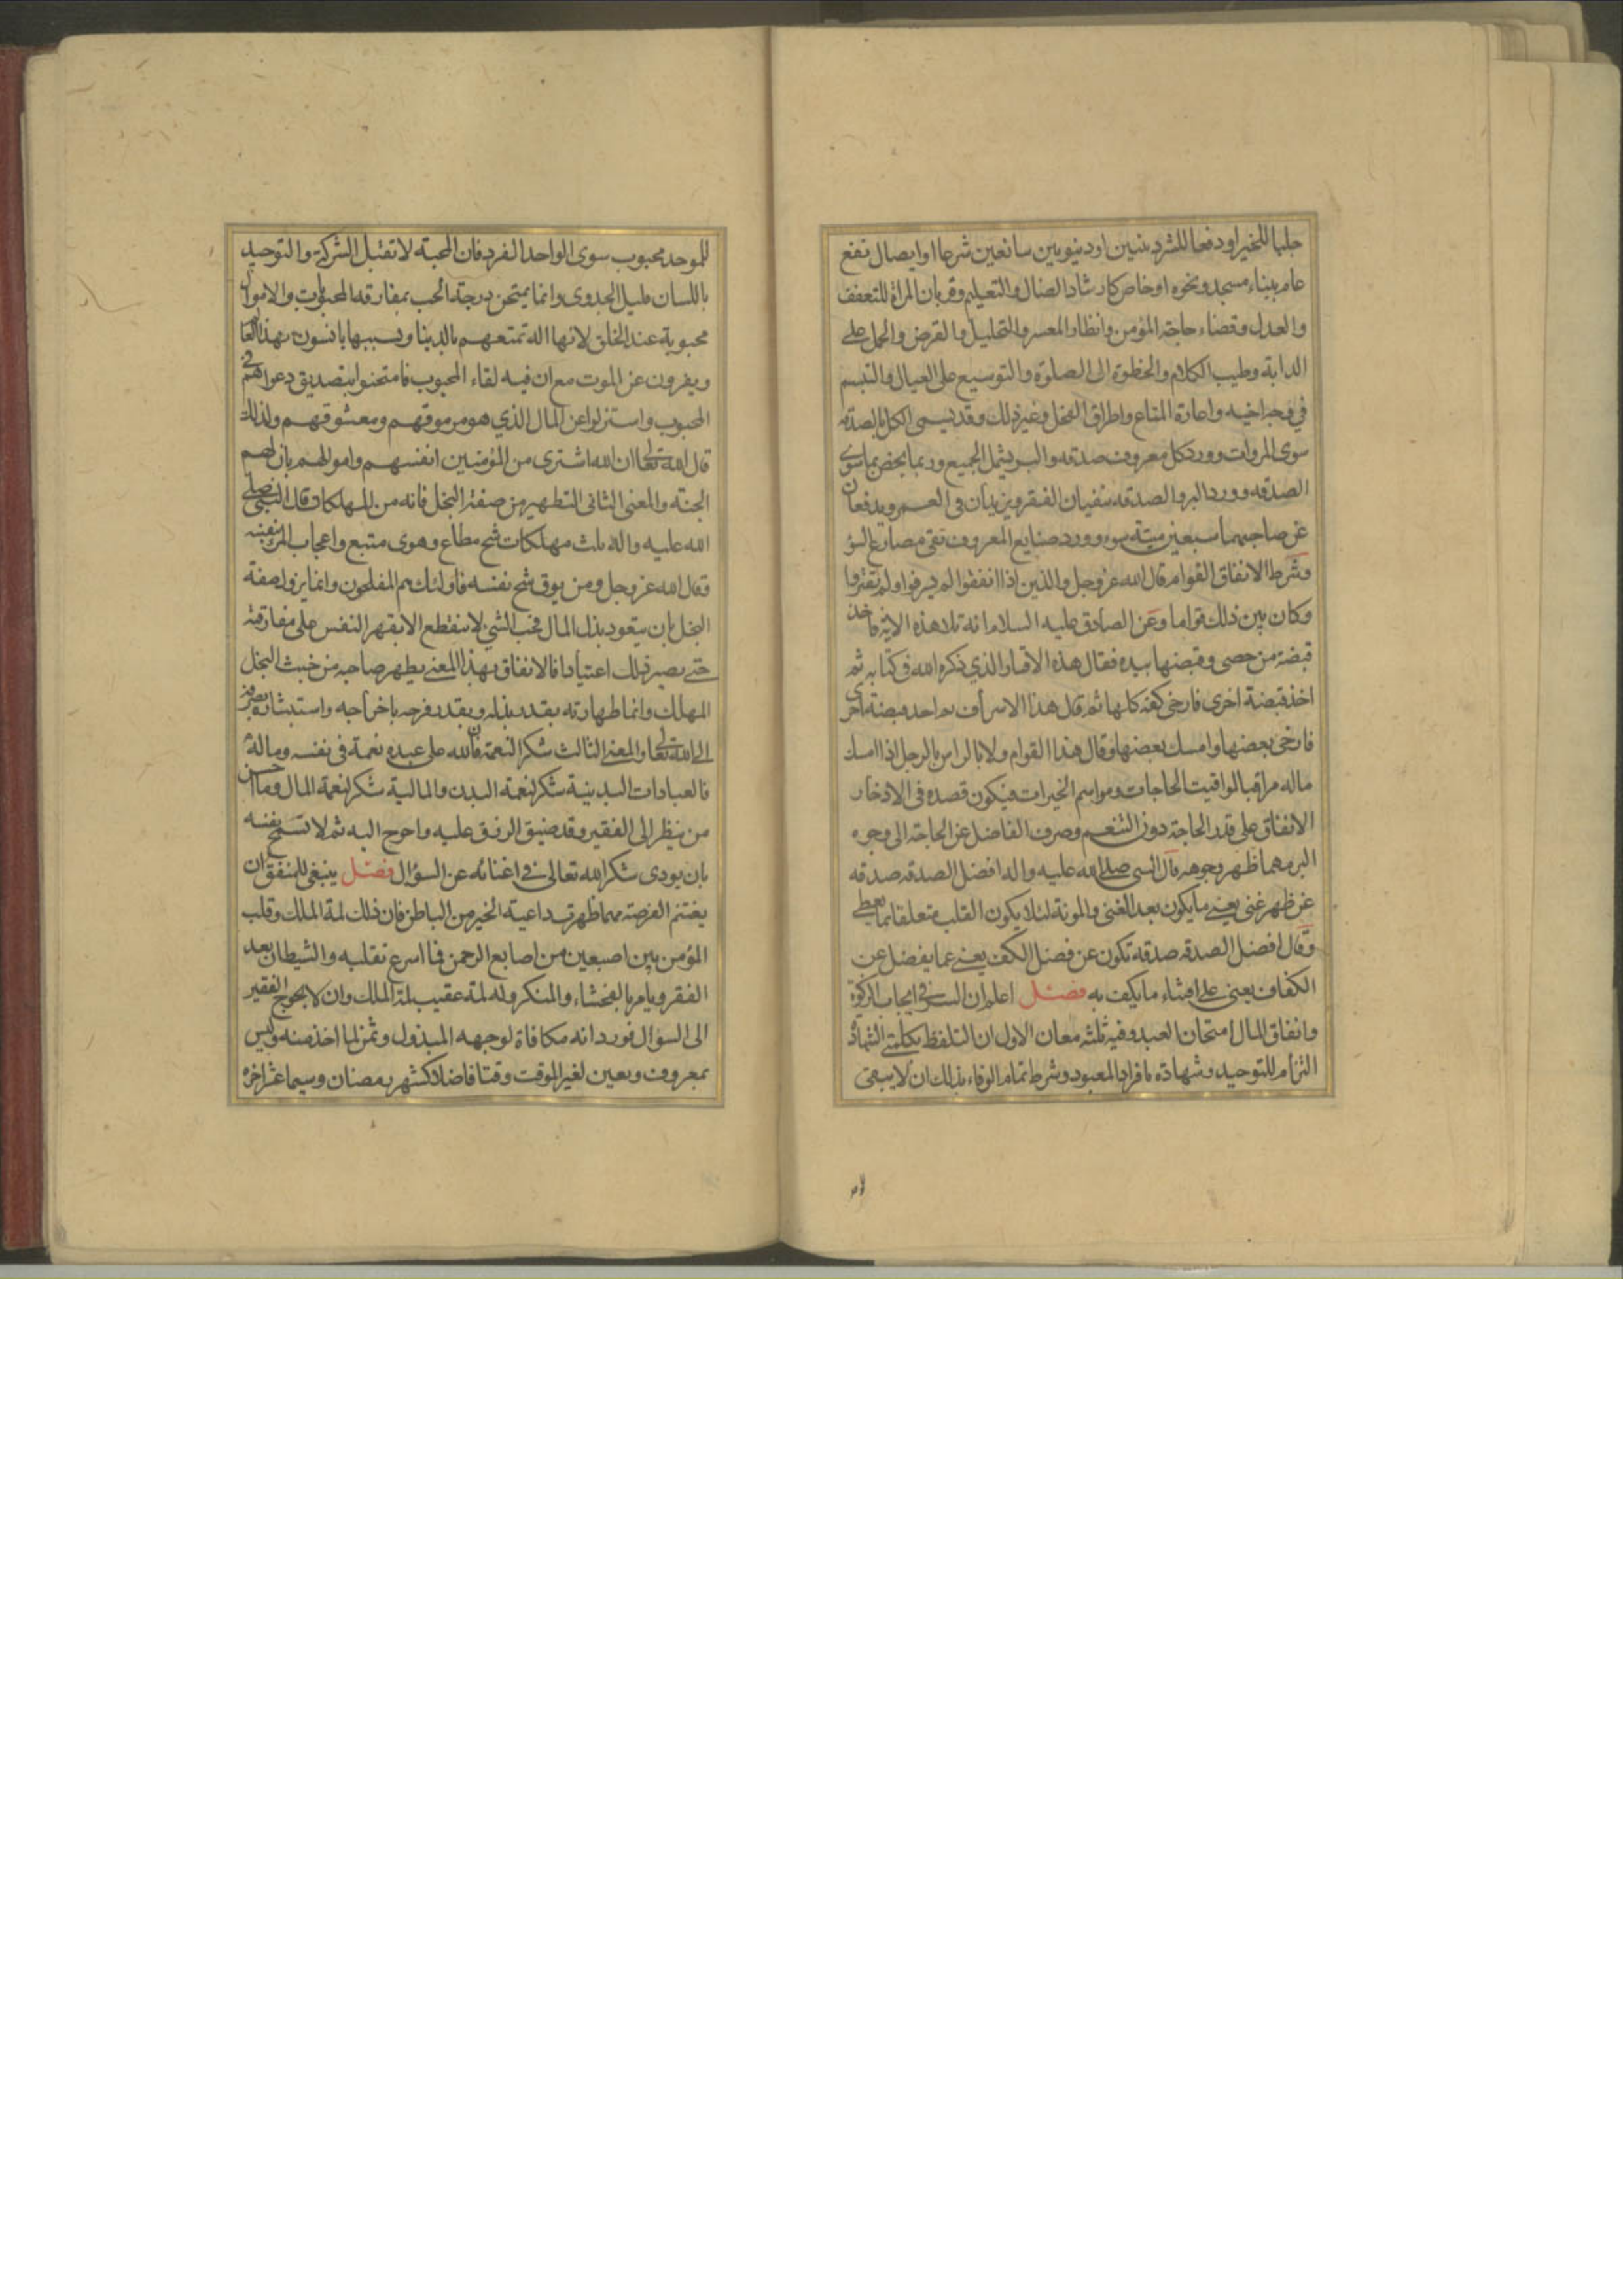 جلبا للخير او دفعا للشر دينيين او دنيويين سائغين شرعا او ايصال نفع
عام ببناء مسجد ونحوه او خاص كارشاد الضال والتعليم وقربان المراة للتعفف
والعدل وقضاء حاجة المؤمن وانظار المعسر والتحليل والقرض والحمل على
الدابة وطيب الكلام والخطوة الى الصلوة والتوسيع على العيال والتبسم
في وجه اخيه واعارة المتاع واطراق الفحل وغير ذلك وقد يسمى الكل بالصدقة
سوى المروات وورد كل معروف صدقه والبر يشمل الجميع وربما يخص بما سوى
الصدقه وورد البر والصدقه ينفيان الفقر ويزيدان في العمر ويدفعان
عن صاحبهما سبعين ميتة سوء وورد صنايع المعروف تقى مصارع السؤ
وشرط الانفاق القوام قال الله عز وجل والذين اذا انفقوا لم يسرفوا ولم يقتروا
وكان بين ذلك قواما وعن الصادق عليه السلام انه تلا هذه الاية فاخذ
قبضة من حصى وقبضها بيده فقال هذه الاقتار الذي ذكره الله في كتابه ثم
اخذ قبضة اخرى فارخى كفه كلها ثم قال هذا الاسراف ثم اخذ قبضة اخرى
فارخى بعضها وامسك بعضها وقال هذا القوام ولا باس بالرجل اذا امسك
ماله مراقبا لمواقيت الحاجات ومواسم الخيرات فيكون قصده في الادخار
الانفاق على قدر الحاجة دون التنعم وصرف الفاضل عن الحاجة الى وجوه
البر مهما ظهر وجوهه قال النبى صلى الله عليه واله افضل الصدقه صدقه
عن ظهر غنى يعنى ما يكون بعد الغنى والمونة لئلا يكون القلب متعلقا بما يعطى
وقال افضل الصدقه صدقه تكون عن فضل الكف يعنى عما يفضل عن
الكفاف يعنى على اقتناء ما يكف به فصل اعلم ان السر في ايجاب الزكوة
وانفاق المال امتحان العبد وفيه ثلثه معان الاول ان التلفظ بكلمتى الشهادة
التزام للتوحيد وشهادة بافراد المعبود وشرط تمام الوفاء بذلك ان لا يبقى
للموحد محبوب سوى الواحد الفرد فان المحبة لا تقبل الشركة والتوحيد
باللسان قليل الجدوى وانما يمتحن درجة الحب بمفارقه المحبوبات والاموال
محبوبة عند الخلق لانها اله تمتعهم بالدينا وبسببها يانسون بهذا العالم
ويفرون عن الموت مع ان فيه لقاء المحبوب فامتحنوا بتصديق دعواهم في
المحبوب واستنزلوا عن المال الذي هو مرموقهم ومعشوقهم ولذلك
قال الله تعالى ان الله اشترى من المؤمنين انفسهم واموالهم بان لهم
الجنة والمعنى الثانى التطهير من صفة البخل فانه من المهلكات قال النبى صلى
الله عليه واله ثلث مهلكات شح مطاع وهوى متبع واعجاب المرء بنفسه
وقال الله عز وجل ومن يوق شح نفسه فاولئك هم المفلحون وانما يزول صفة
البخل بان يتعود بذل المال فحب الشئ لا ينقطع الا بقهر النفس على مفارقته
حتى يصير ذلك اعتيادا فالانفاق بهذا المعنى يطهر صاحبه من خبث البخل
المهلك وانما طهارته بقدر بذله وبقدر فرحه باخراجه واستبشاره بصرفه
الى الله تعالى والمعنى الثالث شكر النعمة فان لله على عبده نعمة في نفسه وماله
فالعبادات البدينية شكر لنعمة البدن والمالية شكر لنعمة المال وما اخس
من ينظر الى الفقير وقد ضيق الرزق عليه واحوج اليه ثم لا تسمح نفسه
بان يودى شكر الله تعالى في اغنائه عن السؤال فصل ينبغى للمنفق ان
يغتنم الفرصة مهما ظهرت داعية الخير من الباطن فان ذلك لمة الملك وقلب
المؤمن بين اصبعين من اصابع الرحمن فما اسرع تقلبه والشيطان يعد
الفقر ويامر بالفحشاء والمنكر وله لمة عقيب لمة الملك وان لا يحوج الفقير
الى السؤال فورد انه مكافاة لوجهه المبذول وثمن لما اخذ منه وليس
بمعروف ويعين لغير الموقت وقتا فاضلا كشهر رمضان وسيما عشر اخره